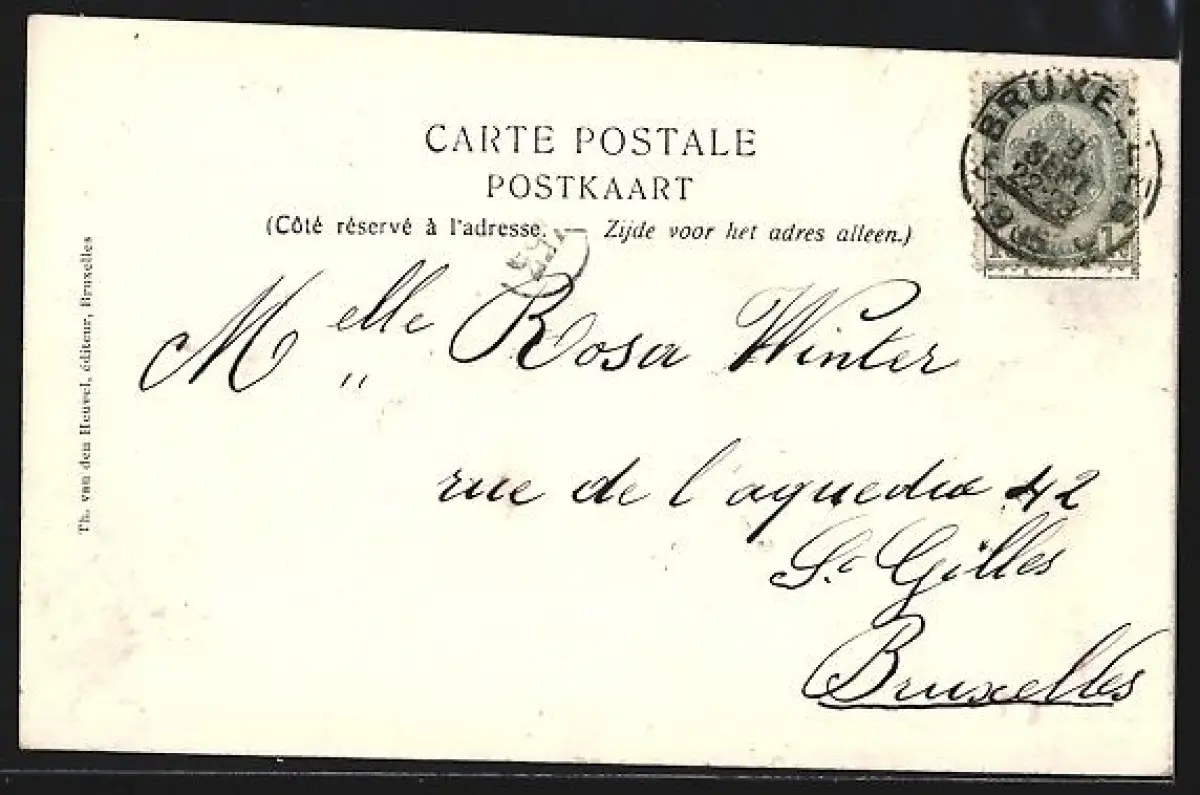 CARTE POSTALE
POSTKAART
(Côté réservé à l'adresse. — Zijde voor het adres alleen.)
Th. van den Heuvel, éditeur, Bruxelles
BRUXELLES
Melle Rosa Winter
rue de l'aqueduc 42
St Gilles
Bruxelles